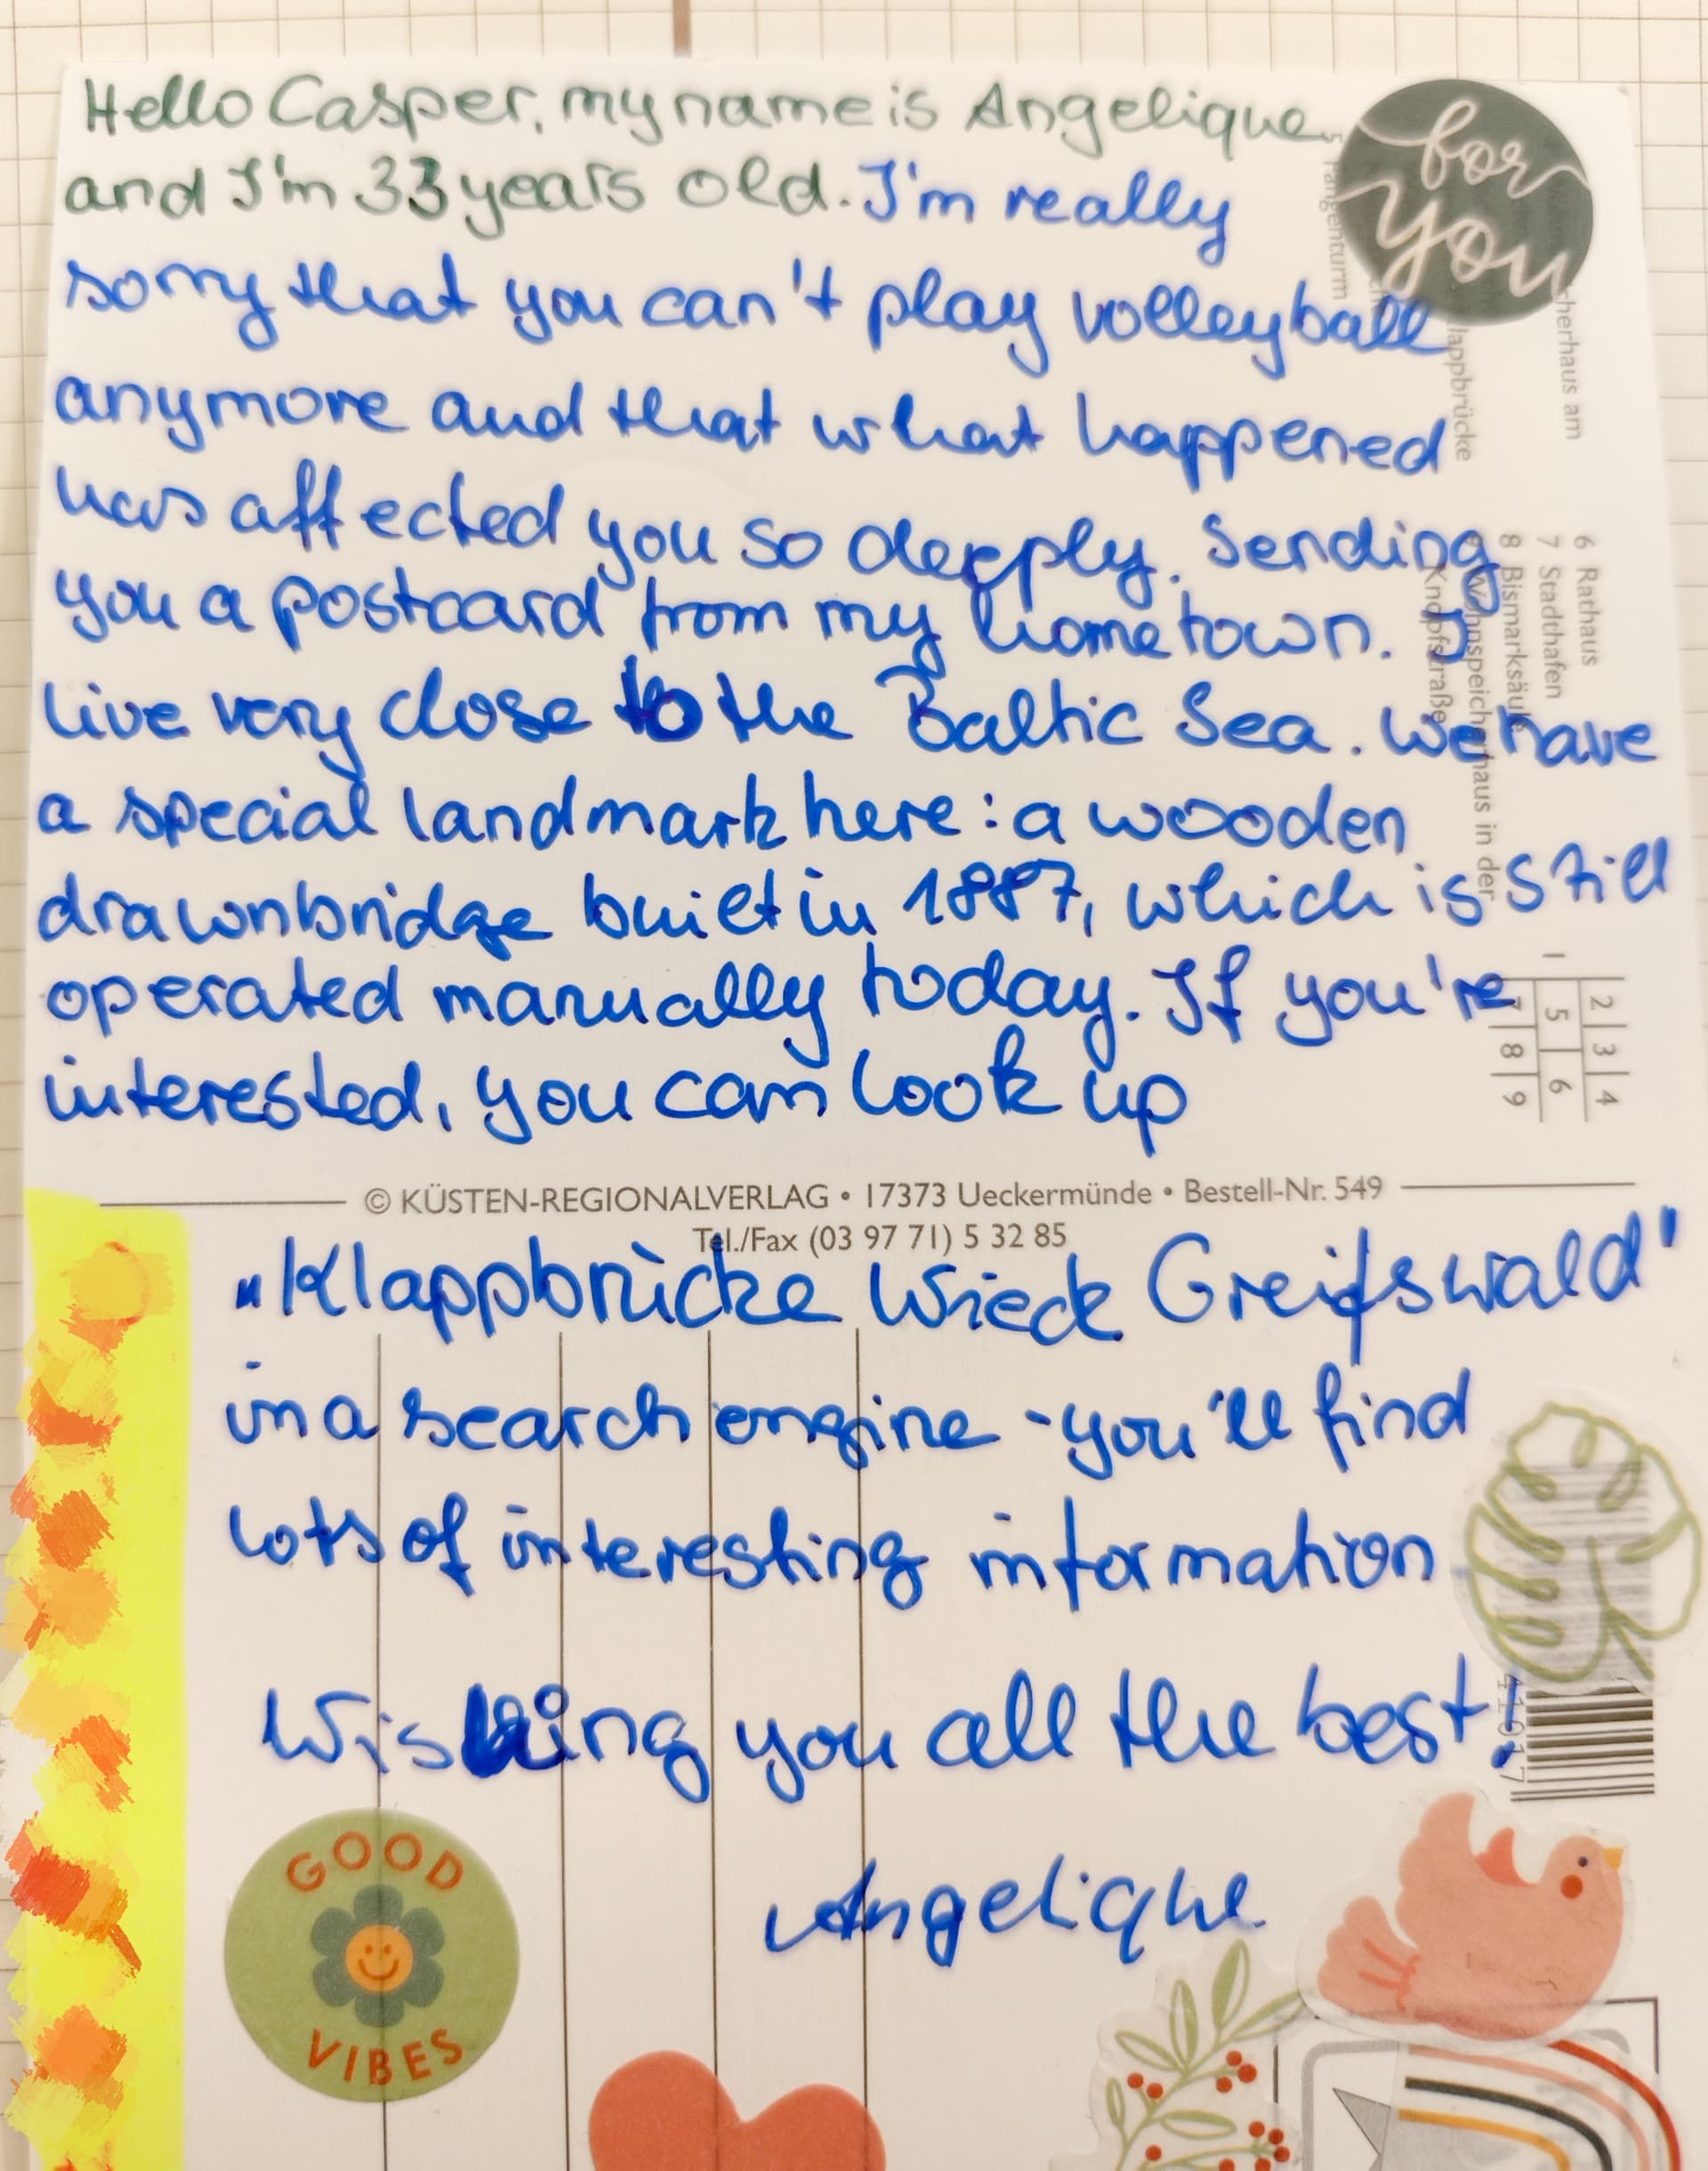 Hello Casper, my name is Angelique
and I'm 33 years old. I'm really
sorry that you can't play volleyball
anymore and that what happened
has affected you so deeply. Sending
you a postcard from my hometown. I
live very close to the Baltic Sea. We have
a special landmark here: a wooden
drawnbridge built in 1887, which is still
operated manually today. If you're
interested, you can look up
© KÜSTEN-REGIONALVERLAG • 17373 Ueckermünde • Bestell-Nr. 549
Tel./Fax (03 97 71) 5 32 85
„Klappbrücke Wieck Greifswald"
in a search engine - you'll find
lots of interesting information
Wishing you all the best!
Angelique
for
you
5 Fangenturm
herhaus am
lappbrücke
6 Rathaus
7 Stadthafen
8 Bismarksäule
9 Wohnspeicherhaus in der
Knopfstraße
1
2 3 4
5 6
7 8 9
GOOD
VIBES